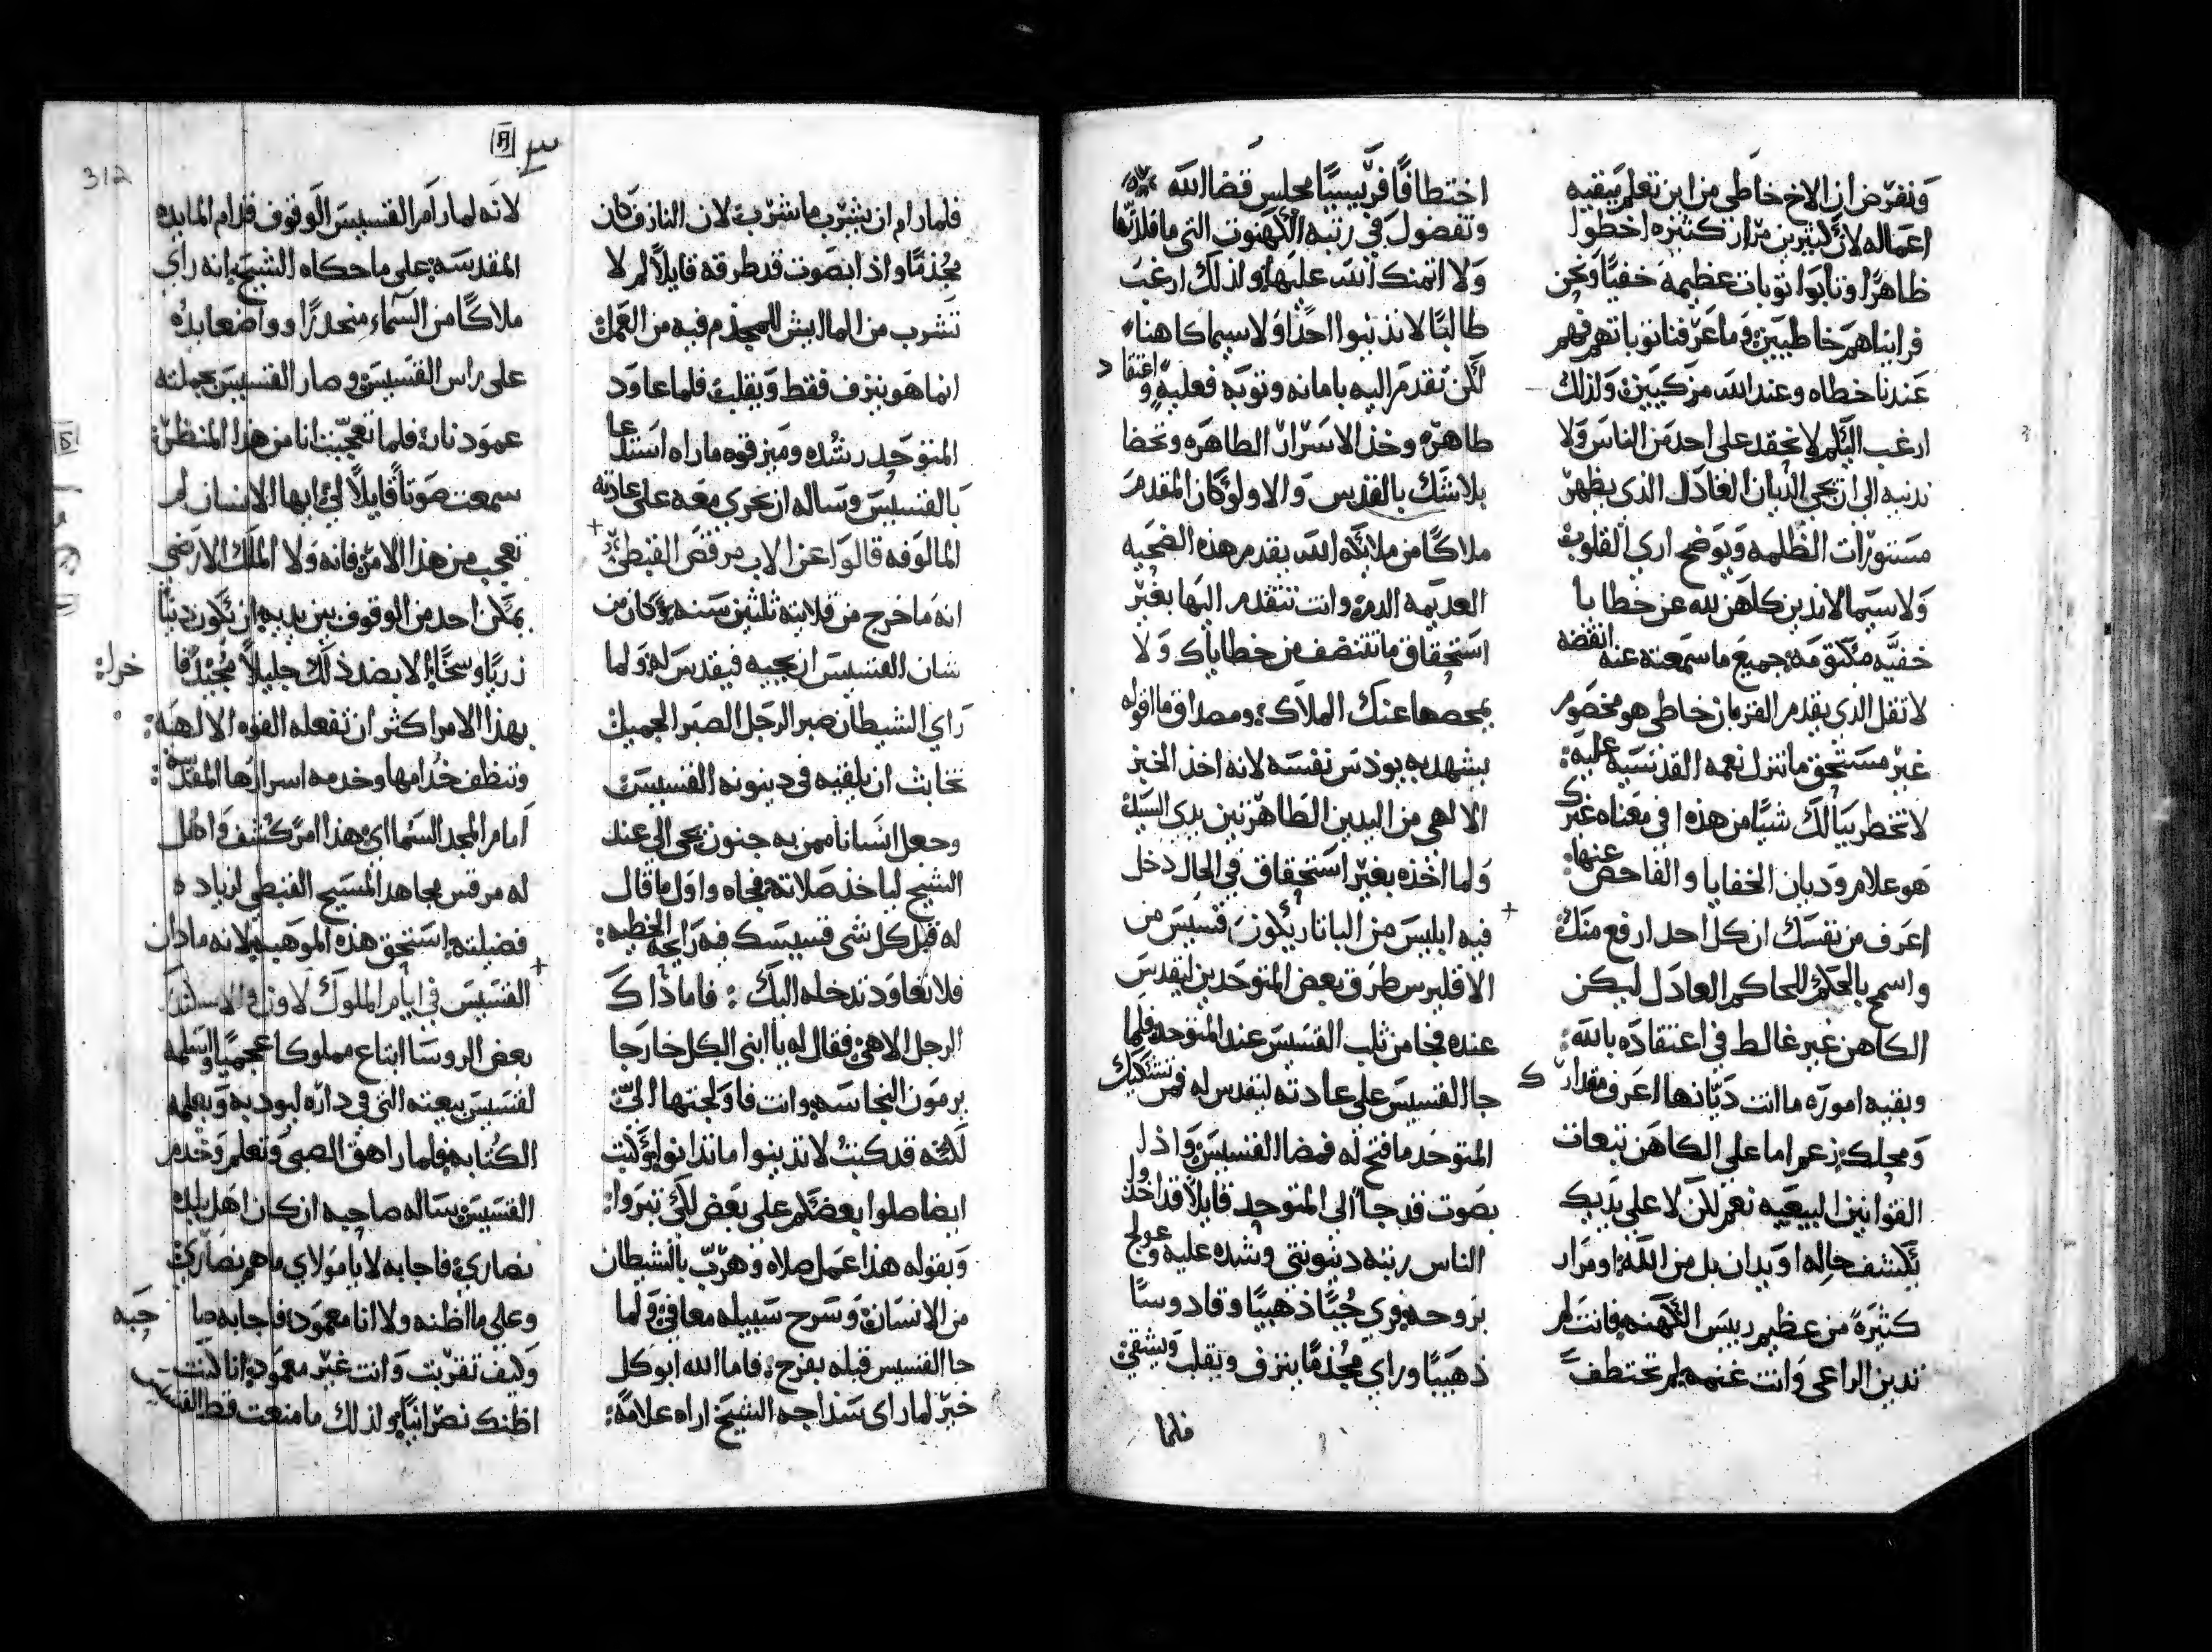 ونفرض ان الاخ خاطي من اين تعلم بقيه
اعماله لان كثيرين مرار كثيره اخطوا
ظاهرًا وتابوا توبات عظيمه خفيًا ونحن
فرايناهم خاطيين وما عرفنا توباتهم فهم
عندنا خطاه وعند الله مزكيين ولذلك
ارغب اليكم لا نحقد على احد من الناس ولا
ندنيه الى ان يجي الديان العادل الذي يظهر
مستورات الظلمه ويوضح اري القلوب
ولا سيما لاندين كاهن لله عن خطايا
خفيه مكتومه جميع ما سمعته عنه انقضه
لا تقل الذي يقدم القربان خاطي هو مخصوم
غير مستحق ما تنزل نعمه القدسيه عليه:
لا تخطر ببالك شيًا من هذه في معناه غيرك
هو علام وديان الخفايا والفاحص عنها:
اعرف من نفسك ان كل احد ارفع منك
واسمح بالحكم للحاكم العادل ليكن
الكاهن غير غالط في اعتقاده بالله:
وبقيه اموره ما انت ديانها اعرف مقدارك
ومحلك زعم اما على الكاهن تبعات
القوانين البيعيه نعم لكن لا على يديك
تكشف حاله او يدان بل من الله او مرار
كثيرة من عظيم رييس الكهنه فانت لم
تدين الراعي وانت غنمه لم تختطف
اختطافًا فريسيًا مجلس قضا الله
وتفضول في رتبه الكهنوت التي ما قلدتها
ولا اتمنك الله عليها ولذلك ارغب
طالبًا لا تدينوا احدًا ولا سيما كاهنا
لكن تقدم اليه بامانه وتوبه فعليه واعتقاد
طاهره وخذ الاسرار الطاهره وتحضا
بلا شك بالقدس والاولو كان المقدم
ملاكًا من ملايكه الله يقدم هذه الضحيه
العديمه الدم وانت تتقدم اليها بغير
استحقاق ما تتنضف من خطاياك ولا
يمحصها عنك الملاك ومصداق ما اقوله
يشهد به يودس نفسه لانه اخذ الخبز
الالهي من اليدين الطاهرتين يدى السيد
ولما اخذه بغير استحقاق في الحال دخل
فيه ابليس من الباتاريكون قسيس من
الاقليرس طرق بعض المتوحدين ليقدس
عنده فجا من ثلب القسيس عند المتوحد فلما
جا القسيس على عادته ليقدس له فمن تشكيك
المتوحد ما فتح له فمضا القسيس واذا
بصوت قد جا الى المتوحد قايلًا قد اخذ
الناس رتبه دينونتي وشده عليه وعولج
بروحه فري جبًا ذهبيًا وقادوسًا
ذهبيًا وراي مجذمًا ينزف ويقلب ويسقي
فلما
فلما رام ان يشرب ما شرب لان النازف كان
مجذمًا واذا بصوت قد طرقه قايلًا لم لا
تشرب من الما ايش للمجذم فيه من العمل
انما هو ينزف فقط ويقلب فلما عاود
المتوحد رشده وميز قوه ما راه استدعا
بالقسيس وساله ان يجري معه على عادته
المالوفه قالوا عن الاب مرقص القبطي
انه ما خرج من قلايته ثلثين سنه وكان من
شان القسيس ان يجيه فيقدس له ولما
راي الشيطان صبر الرجل الصبر الجميل
تخابث ان يلقيه في دينونه القسيس
وجعل انسانًا ممن به جنون يجي الى عند
الشيخ لياخذ صلاته فجاه واول ما قال
له قبل كل شي قسيسك فيه رايحه الخطيه:
فلا تعاود تدخله اليك: فاما ذاك
الرجل الالاهي فقال له يا ابني الكل خارجا
يرمون النجاسه وانت فاولجتها الي
لكنه قد كتب لا تدينوا ما تدانوا
ايضا صلوا بعضكم على بعض لكي تبروا:
وبقوله هذا عمل صلاه وهرب بالشيطان
من الانسان وسرح سبيله معافي ولما
جا القسيس قبله بفرح: فاما الله ابو كل
خير لما راى سذاجه الشيخ اراه علامه:
س
312
لانه لما رام القسيس الوقوف قدام المايده
المقدسه على ما حكاه الشيخ انه راي
ملاكًا من السماء منحدرًا وواضعا يده
على راس القسيس وصار القسيس بجملته
عمود نار فلما تعجبت انا من هذا المنظر
سمعت صوتًا قايلًا لي ايها الانسان لم
تعجب من هذا الامر فانه ولا الملك الارضي
يمكن احد من الوقوف بين يديه ان يكون دنيًا
زريًا وسخًا الا بضد ذلك جليلًا مجيدًا
بهذا الامر اكثر ان تفعله القوه الالهيه:
وتنظف خدامها وخدمه اسرارها المقدسه:
امام المجد السماي هذا امر كشف واهل
له مرقس مجاهد المسيح القبطي لزياده
فضيلته استحق هذه الموهبه لانه ما دان
القسيس في ايام الملوك لاون
بعض الروسا ابتاع مملوكا عجميًا وسلمه
لقسيس بيعته التي في داره ليودبه ويعلمه
الكتابه فلما راهق الصبي وتعلم وخدم
القسيس ساله صاحبه ان كان اهل بلده
نصاري فاجابه لا يا مولاي ما هم نصاري
وعلى ما اظنه ولا انا معمود فاجابه صا حبه
وكيف تقربت وانت غير معمود انا كنت
اظنك نصرانيًا ولذلك ما منعت قط القسيس